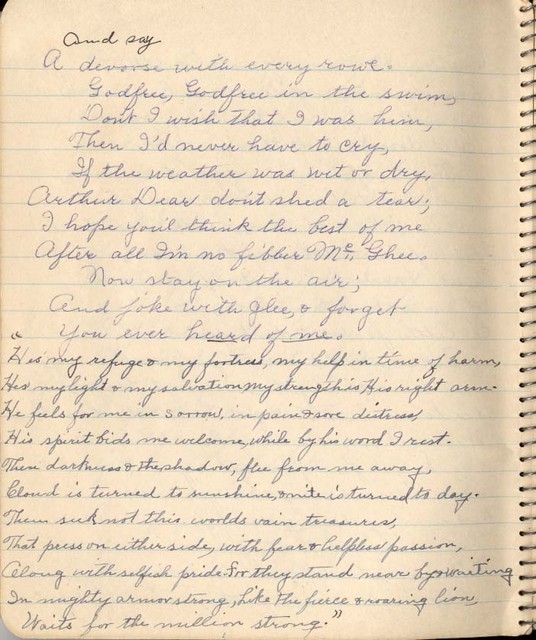 And say
A devorse with every rowe.
Godfree, Godfree in the swim,
Don't I wish that I was him,
Then I'd never have to cry,
If the weather was wet or dry,
Arthur Dear don't shed a tear;
I hope you'd think the best of me
After all I'm no fibber Mc. Ghee.
Now stay on the air;
And joke with Glee, & forget
You ever heard of me.
"He's my refuge & my fortress, my help in time of harm,
He's my light & my salvation, my strength is His right arm.
He feels for me in sorrow, in pain & sore distress,
His spirit bids me welcome, while by his word I rest.
Then darkness & the shadow, flee from me away,
Cloud is turned to sunshine, & nite is turned to day.
Then seek not this worlds vain treasures,
That press on either side, with fear & helpless passion,
Along with selfish pride. For they stand near by & waiting
In mighty armor strong, like the fierce & roaring lion,
Waits for the million strong."